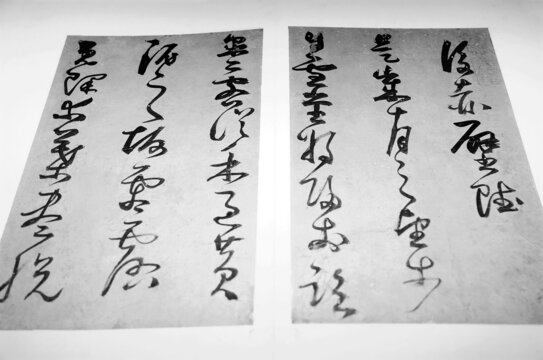 後赤壁賦
是歲十月之望步
自雪堂將歸於臨
皋二客從余過黃
泥之坂霜露
既降木葉盡脫